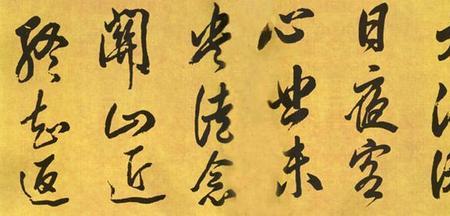 日夜客
心悲未
央徒念
關山近
終知返